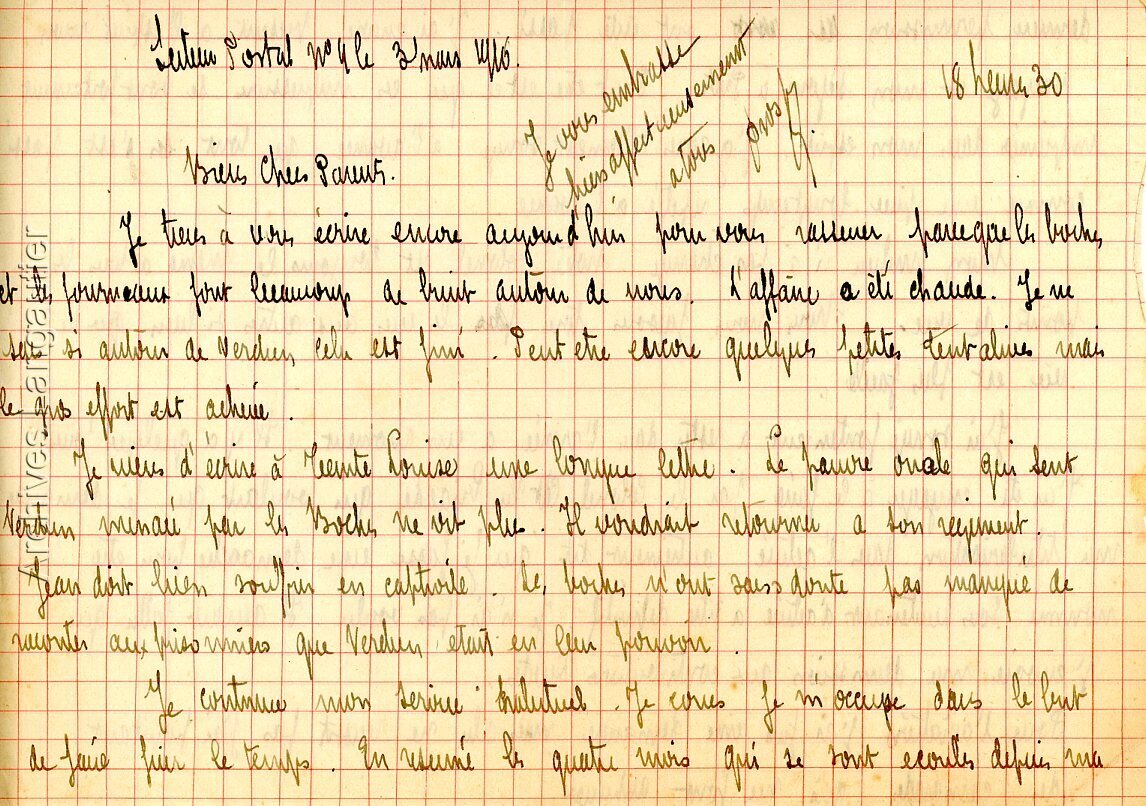 Secteur Postal N° 9 le 3 mars 1916.
18 heures 30
Je vous embrasse
biens affectueusement
a tous
Biens Chers Parents.
Je tiens à vous écrire encore aujourd'hui pour vous rassurer parce que les boches
et les journaux font beaucoup de bruit autour de nous. L'affaire a été chaude. Je ne
sais si autour de Verdun cela est fini. Peut etre encore quelques petites tentatives mais
le gros effort est achevé.
Je viens d'écrire à Tante Louise une longue lettre. Le pauvre oncle qui sent
Verdun menacé par les Boches ne vit plus. Il voudrait retourner a son regiment.
Jean doit bien souffrir en captivité. Les boches n'ont sans doute pas manqué de
raconter aux prisonniers que Verdun etait en leur pouvoir.
Je continue mon service habituel. Je cours je m'occupe dans le but
de faire fuir le temps. En resumé les quatre mois qui se sont ecoulés depuis ma
Archives Langautier